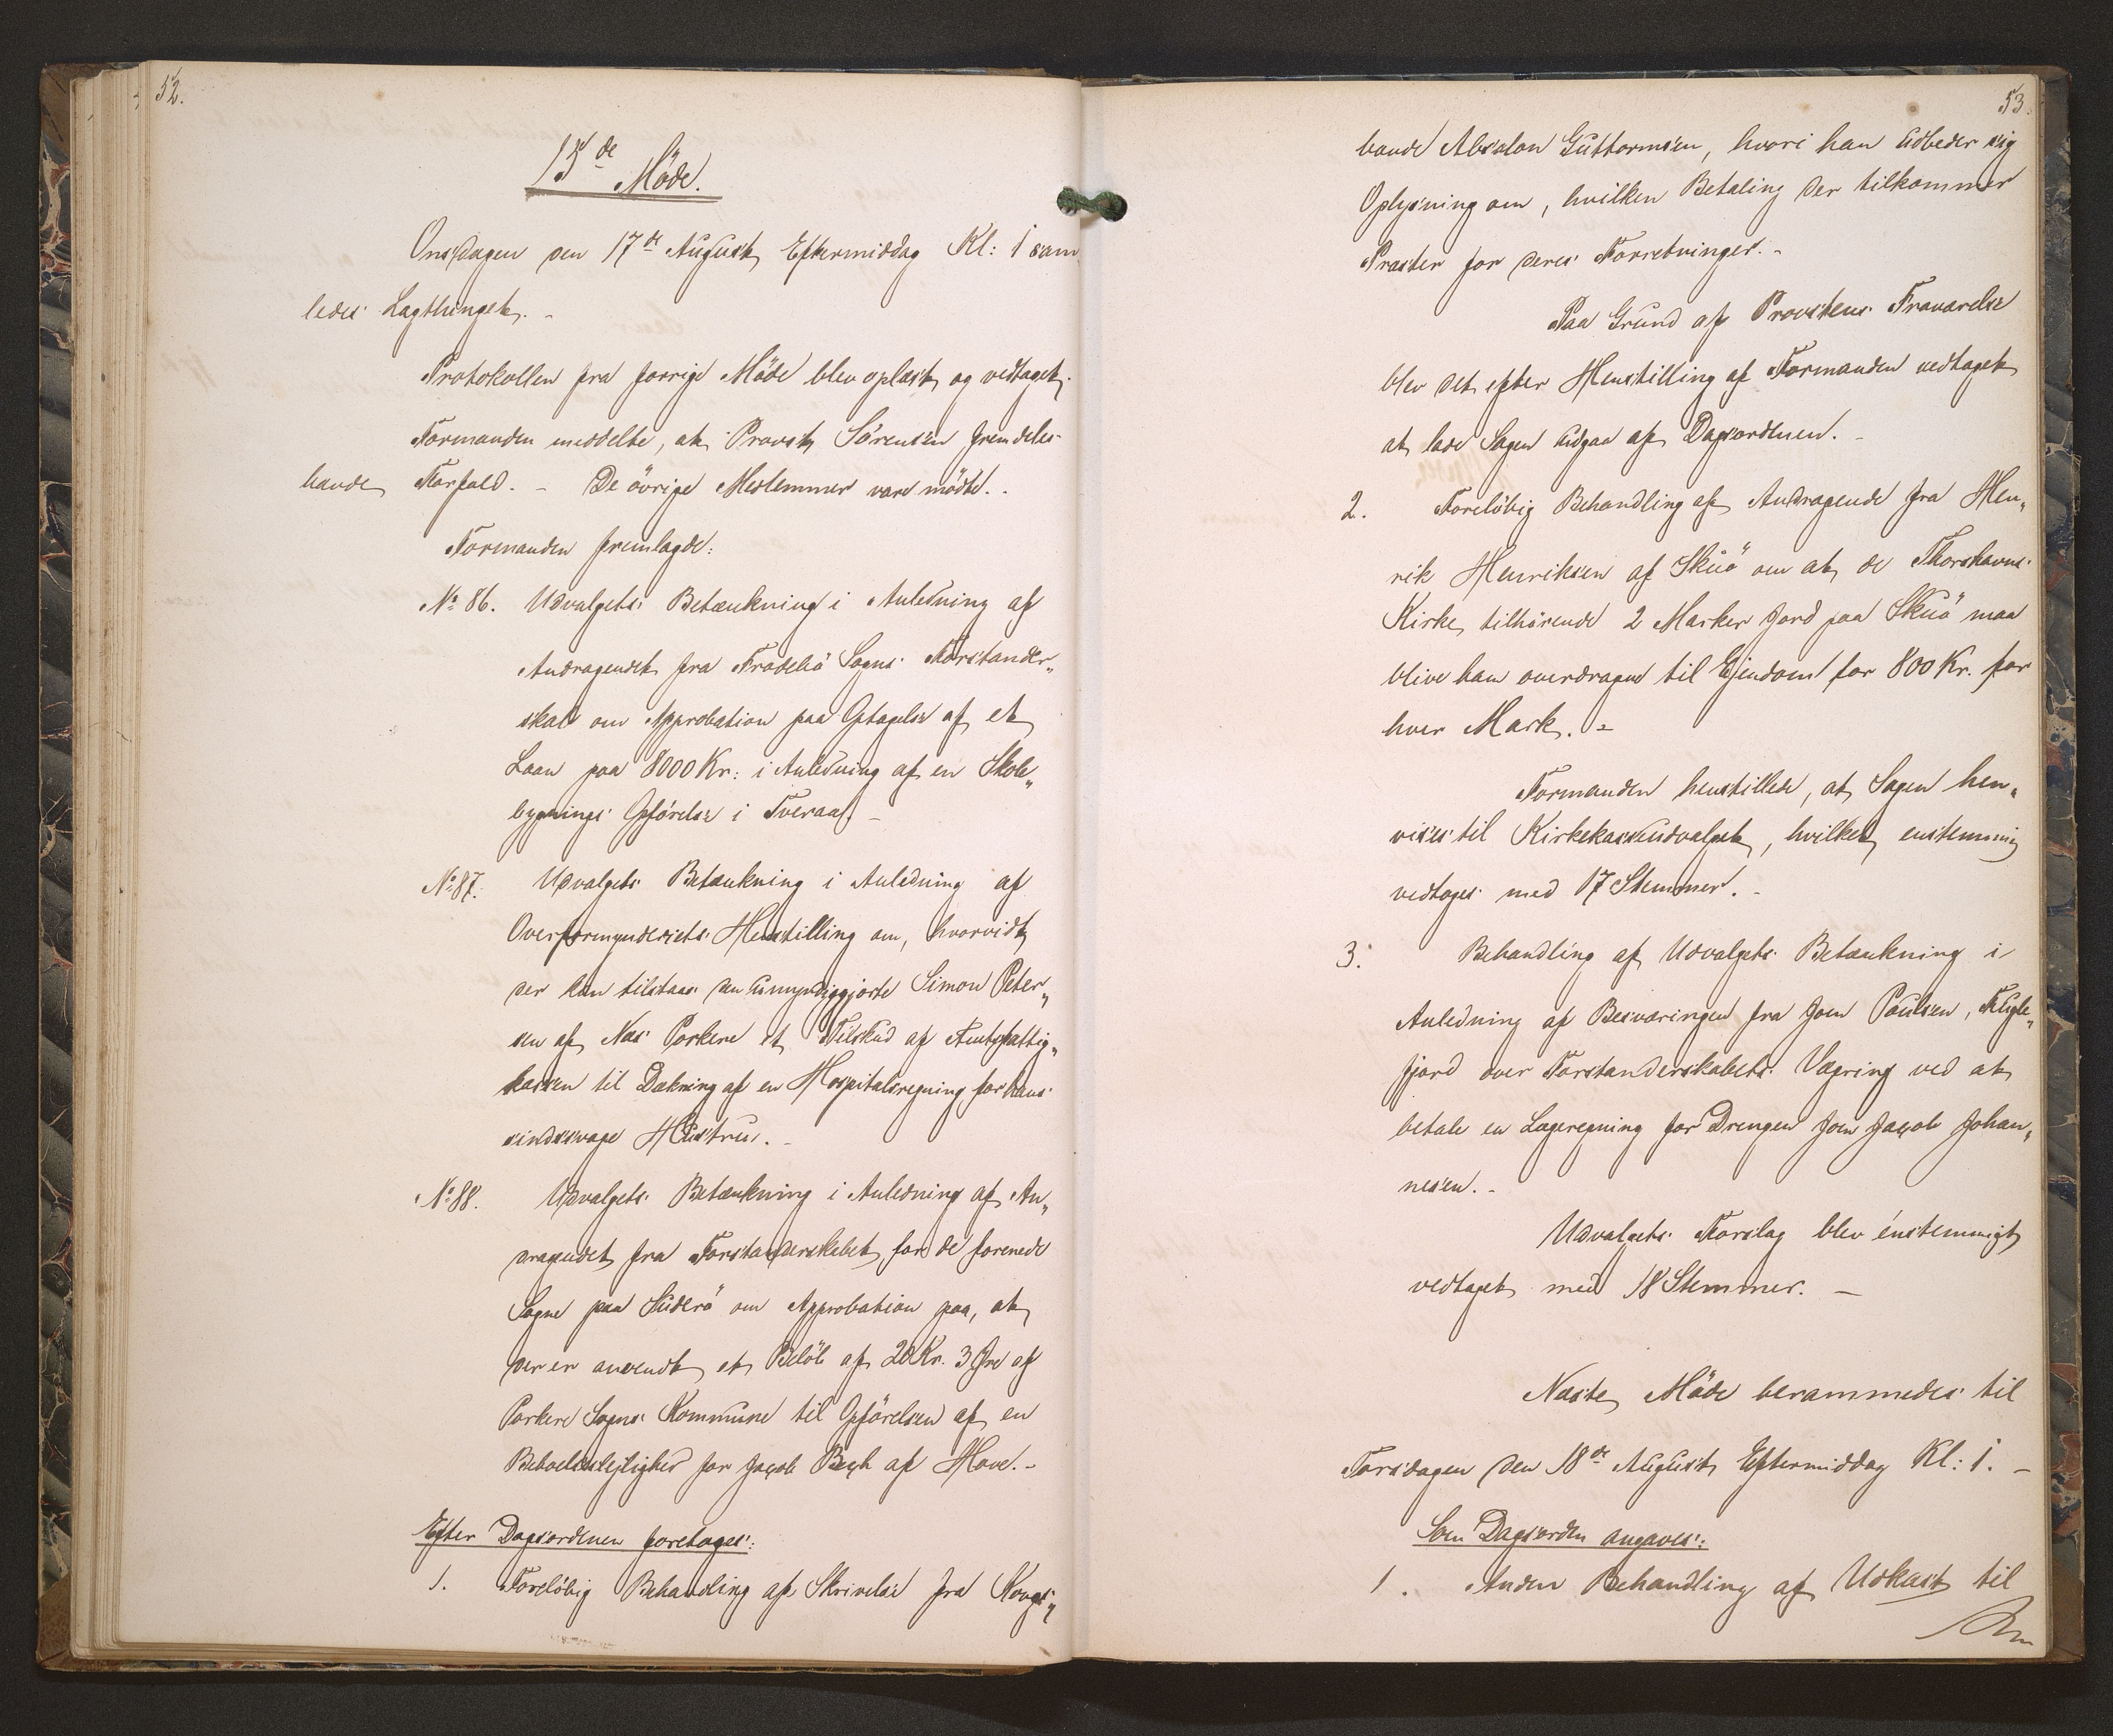 52.
15de Möde.
Onsdagen den 17de August Eftermiddag Kl: 1 sam
ledes Lagthinget. -
Protokollen fra forrige Möde blev oplæst og vedtaget.
Formanden meddelte, at Provst Sörensen fremdeles
havde Forfald. - De övrige Medlemmer vare mödte. -
Formanden fremlagde:
No 86. Udvalgets Betænkning i Anledning af
Andragendet fra Frodebö Sogns Forstander„
skab om Approbation paa Optagelse af et
Laan paa 8000 Kr: i Anledning af en Skole„
bygnings Opförelse i Tveraa. -
No 87. Udvalgets Betænkning i Anledning af
Overformynderiets Henstilling om, hvorvidt
der kan tilstaas den umyndiggjorte Simon Peter„
sen af Næs Porkere et Tilskud af Amtsfattig„
kassen til Dækning af en Hospitalsregning for hans
sindssvage Hustru. -
No 88. Udvalgets Betænkning i Anledning af An„
dragendet fra Forstanderskabet for de forenede
Sogne paa Suderö om Approbation paa, at
der er anvendt et Belöb af 20 Kr. 3 Øre af
Porkere Sogns Kommune til Opförelsen af en
Beboelseslejlighed for Jacob Bech af Hove. -
Efter Dagsordenen foretages:
1. Foreløbig Behandling af Skrivelse fra Kongs„
53.
bonde Absalon Guttormsen, hvori han udbeder sig
Oplysning om, hvilken Betaling der tilkommer
Præster for deres Forretninger. -
Paa Grund af Provstens Fraværelse
blev det efter Henstilling af Formanden vedtaget
at lade Sagen udgaa af Dagsordenen. -
2. Foreløbig Behandling af Andragende fra Hen„
rik Henriksen af Skuö om at de Thorshavns
Kirke tilhörende 2 Marker Jord paa Skuö maa
blive ham overdragne til Ejendom for 800 Kr. for
hver Mark. -
Formanden henstillede, at Sagen hen„
vises til Kirkekasseudvalget, hvilket enstemmig
vedtoges med 17 Stemmer. -
3. Behandling af Udvalgets Betænkning i
Anledning af Besværingen fra Joen Poulsen, Fugle„
fjord over Forstanderskabets Vægring ved at
betale en Lægeregning for Drengen Joen Jacob Johan„
nesen. -
Udvalgets Forslag blev énstemmigt
vedtaget med 18 Stemmer. -
Næste Möde berammedes til
Torsdagen den 18de August Eftermiddag Kl: 1. -
Som Dagsorden angaves:
1. Anden Behandling af Udkast til